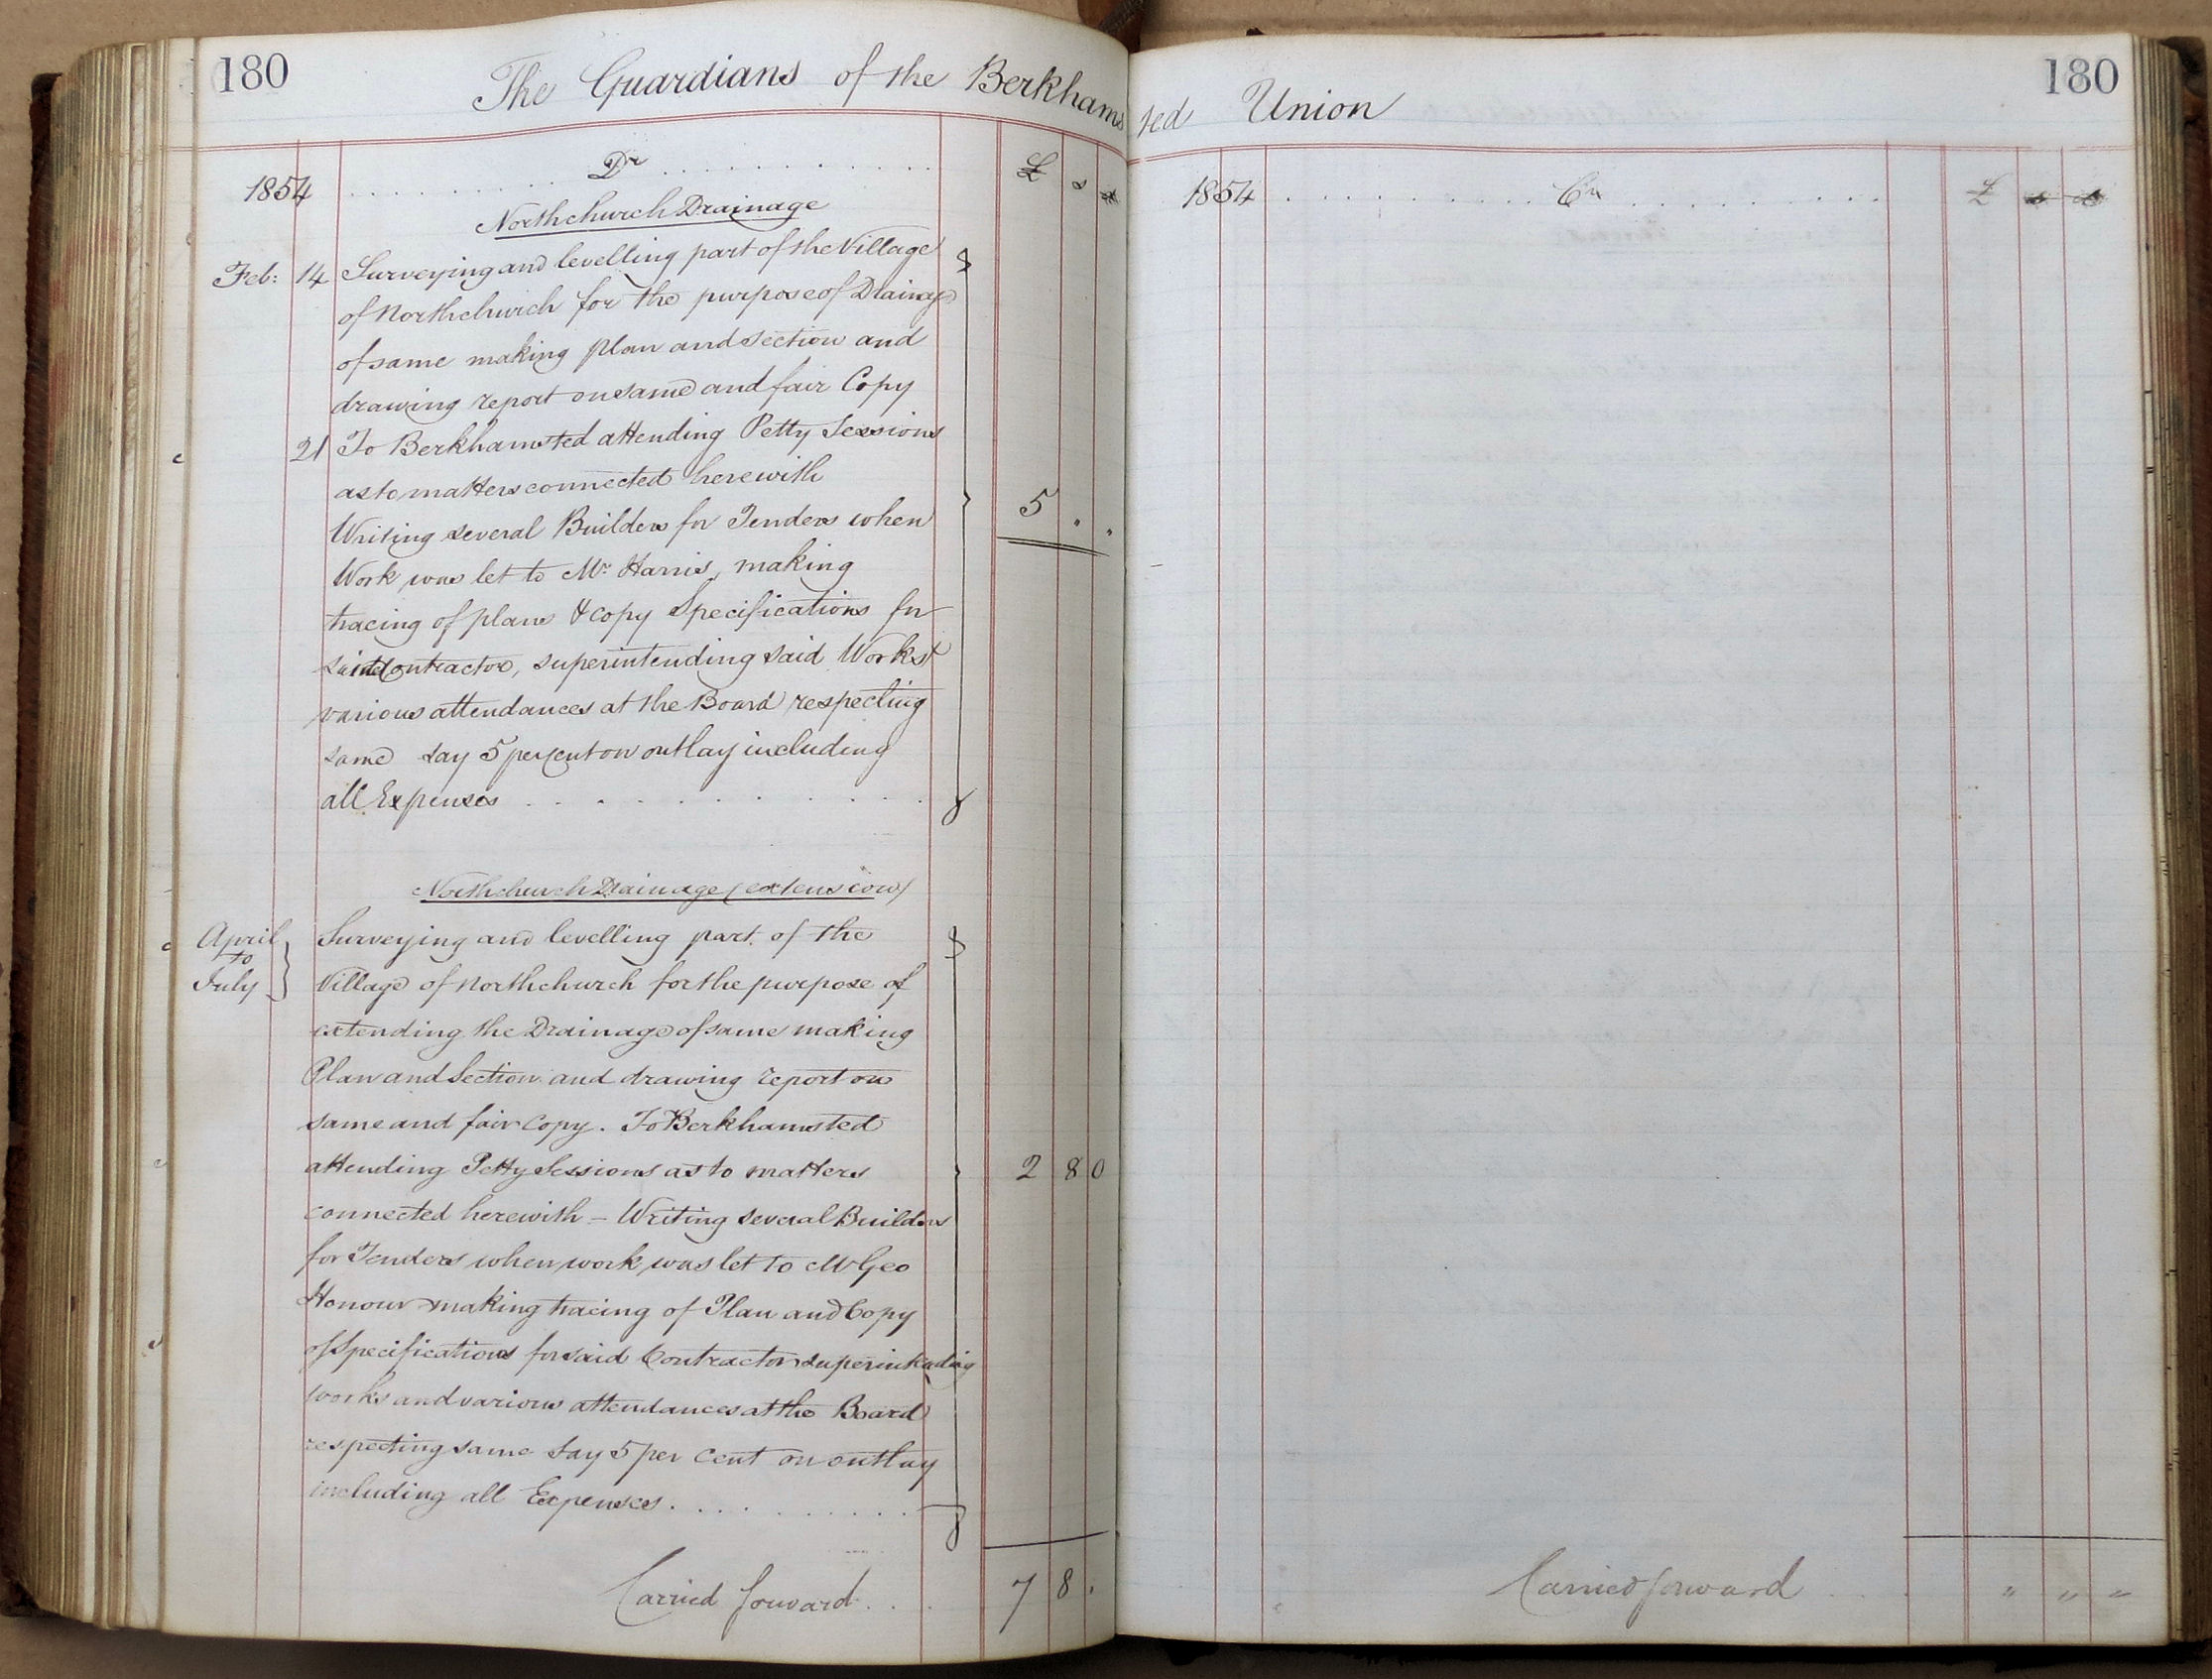 180
The Guardians of the Berkhamsted Union
180
Dr
£ s d
1854
Northchurch Drainage
Feb: 14 Surveying and levelling part of the Village
of Northchurch for the purpose of Drainage
of same making plan and section and
drawing report on same and fair Copy
21 To Berkhamsted attending Petty Sessions
as to matters connected herewith
Writing several Builders for Tenders when
5 " "
Work was let to Mr Harris, making
tracing of plans & copy Specifications for
said Contractor, superintending said Works &
various attendances at the Board respecting
same say 5 per Cent on outlay including
all Expenses
Northchurch Drainage (extension)
April to July
Surveying and levelling part of the
Village of Northchurch for the purpose of
extending the Drainage of same making
Plan and Section and drawing report on
same and fair Copy. To Berkhamsted
attending Petty Sessions as to matters 2 8 0
connected herewith – Writing several Builders
for Tenders when work was let to Mr Geo
Honour making tracing of Plan and Copy
of Specifications for said Contractor superintending
works and various attendances at the Board
respecting same say 5 per Cent on outlay
including all Expenses
Carried forward 7 8 "
1854 Cr £ s d
Carried forward " " "